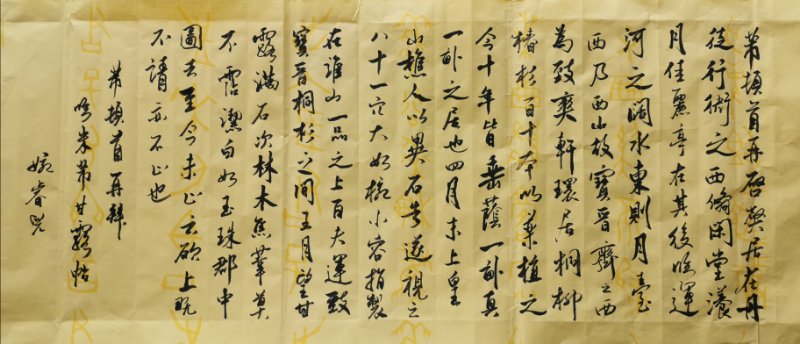 芾頓首再啓弊居在丹
徒行衙之西翛閑堂漾
月佳麗亭在其後臨運
河之闊水東則月臺
西乃西山故寶晉齋之西
為致爽軒環居桐柳
椿杉百十本以藥植之
今十年皆垂蔭一畝真
一畝之居也四月末上皇
山樵人以異石告遂視之
八十一穴大如椀小容指製
在淮山一品之上百夫運致
寶晉桐杉之間五月望甘
露滿石次林木焦葦莫
不霑潔白如玉珠郡中
圖去至今未止云欲上既
不請亦不止也
芾頓首再拜
臨米芾甘露帖